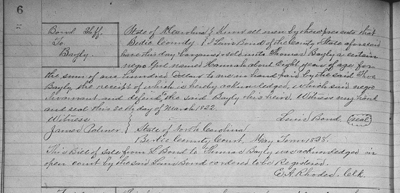 6
Bond Lewis State of N Carolina } Know all men by these presents that
To Bertie County } I Lewis Bond of the County & State aforesaid
Bayly have this day bargained & sold unto Thomas Bayly a certain
negro Girl named Hannah about Eight years of age for
the sum of one hundred Dollars to me in hand paid by the said Thos
Bayly the receipt of which is hereby acknowledged, which said negro
I warrant and defend the said Bayly his heirs Witness my hand
and seal this day of March 1822
Witness Lewis Bond (Seal)
James Palmer } State of North Carolina
Bertie County Court, May Term 1828.
This Bill of Sale from L Bond to Thomas Bayly was acknowledged in
open court by the said Lewis Bond ordered to be Registered.
E A Rhodes, Clk